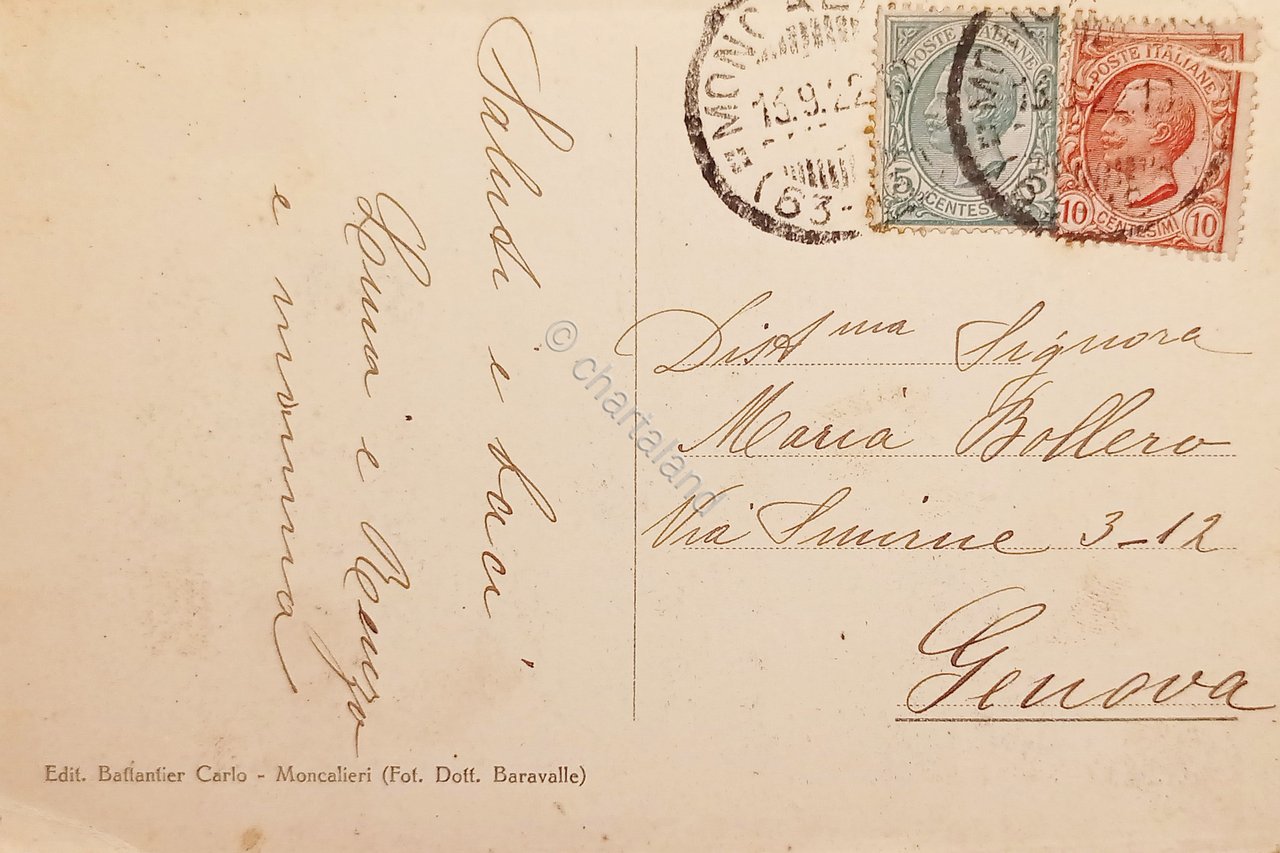 Saluti e baci
Luisa e Renzo
e nonna
MONC
13.9.22
(63-
POSTE ITALIANE
5 CENTES 5
POSTE ITALIANE
10 CENTESIMI 10
Distma Signora
Maria Bollero
Via Smirne 3-12
Genova
© chartaland
Edit. Battantier Carlo - Moncalieri (Fot. Dott. Baravalle)